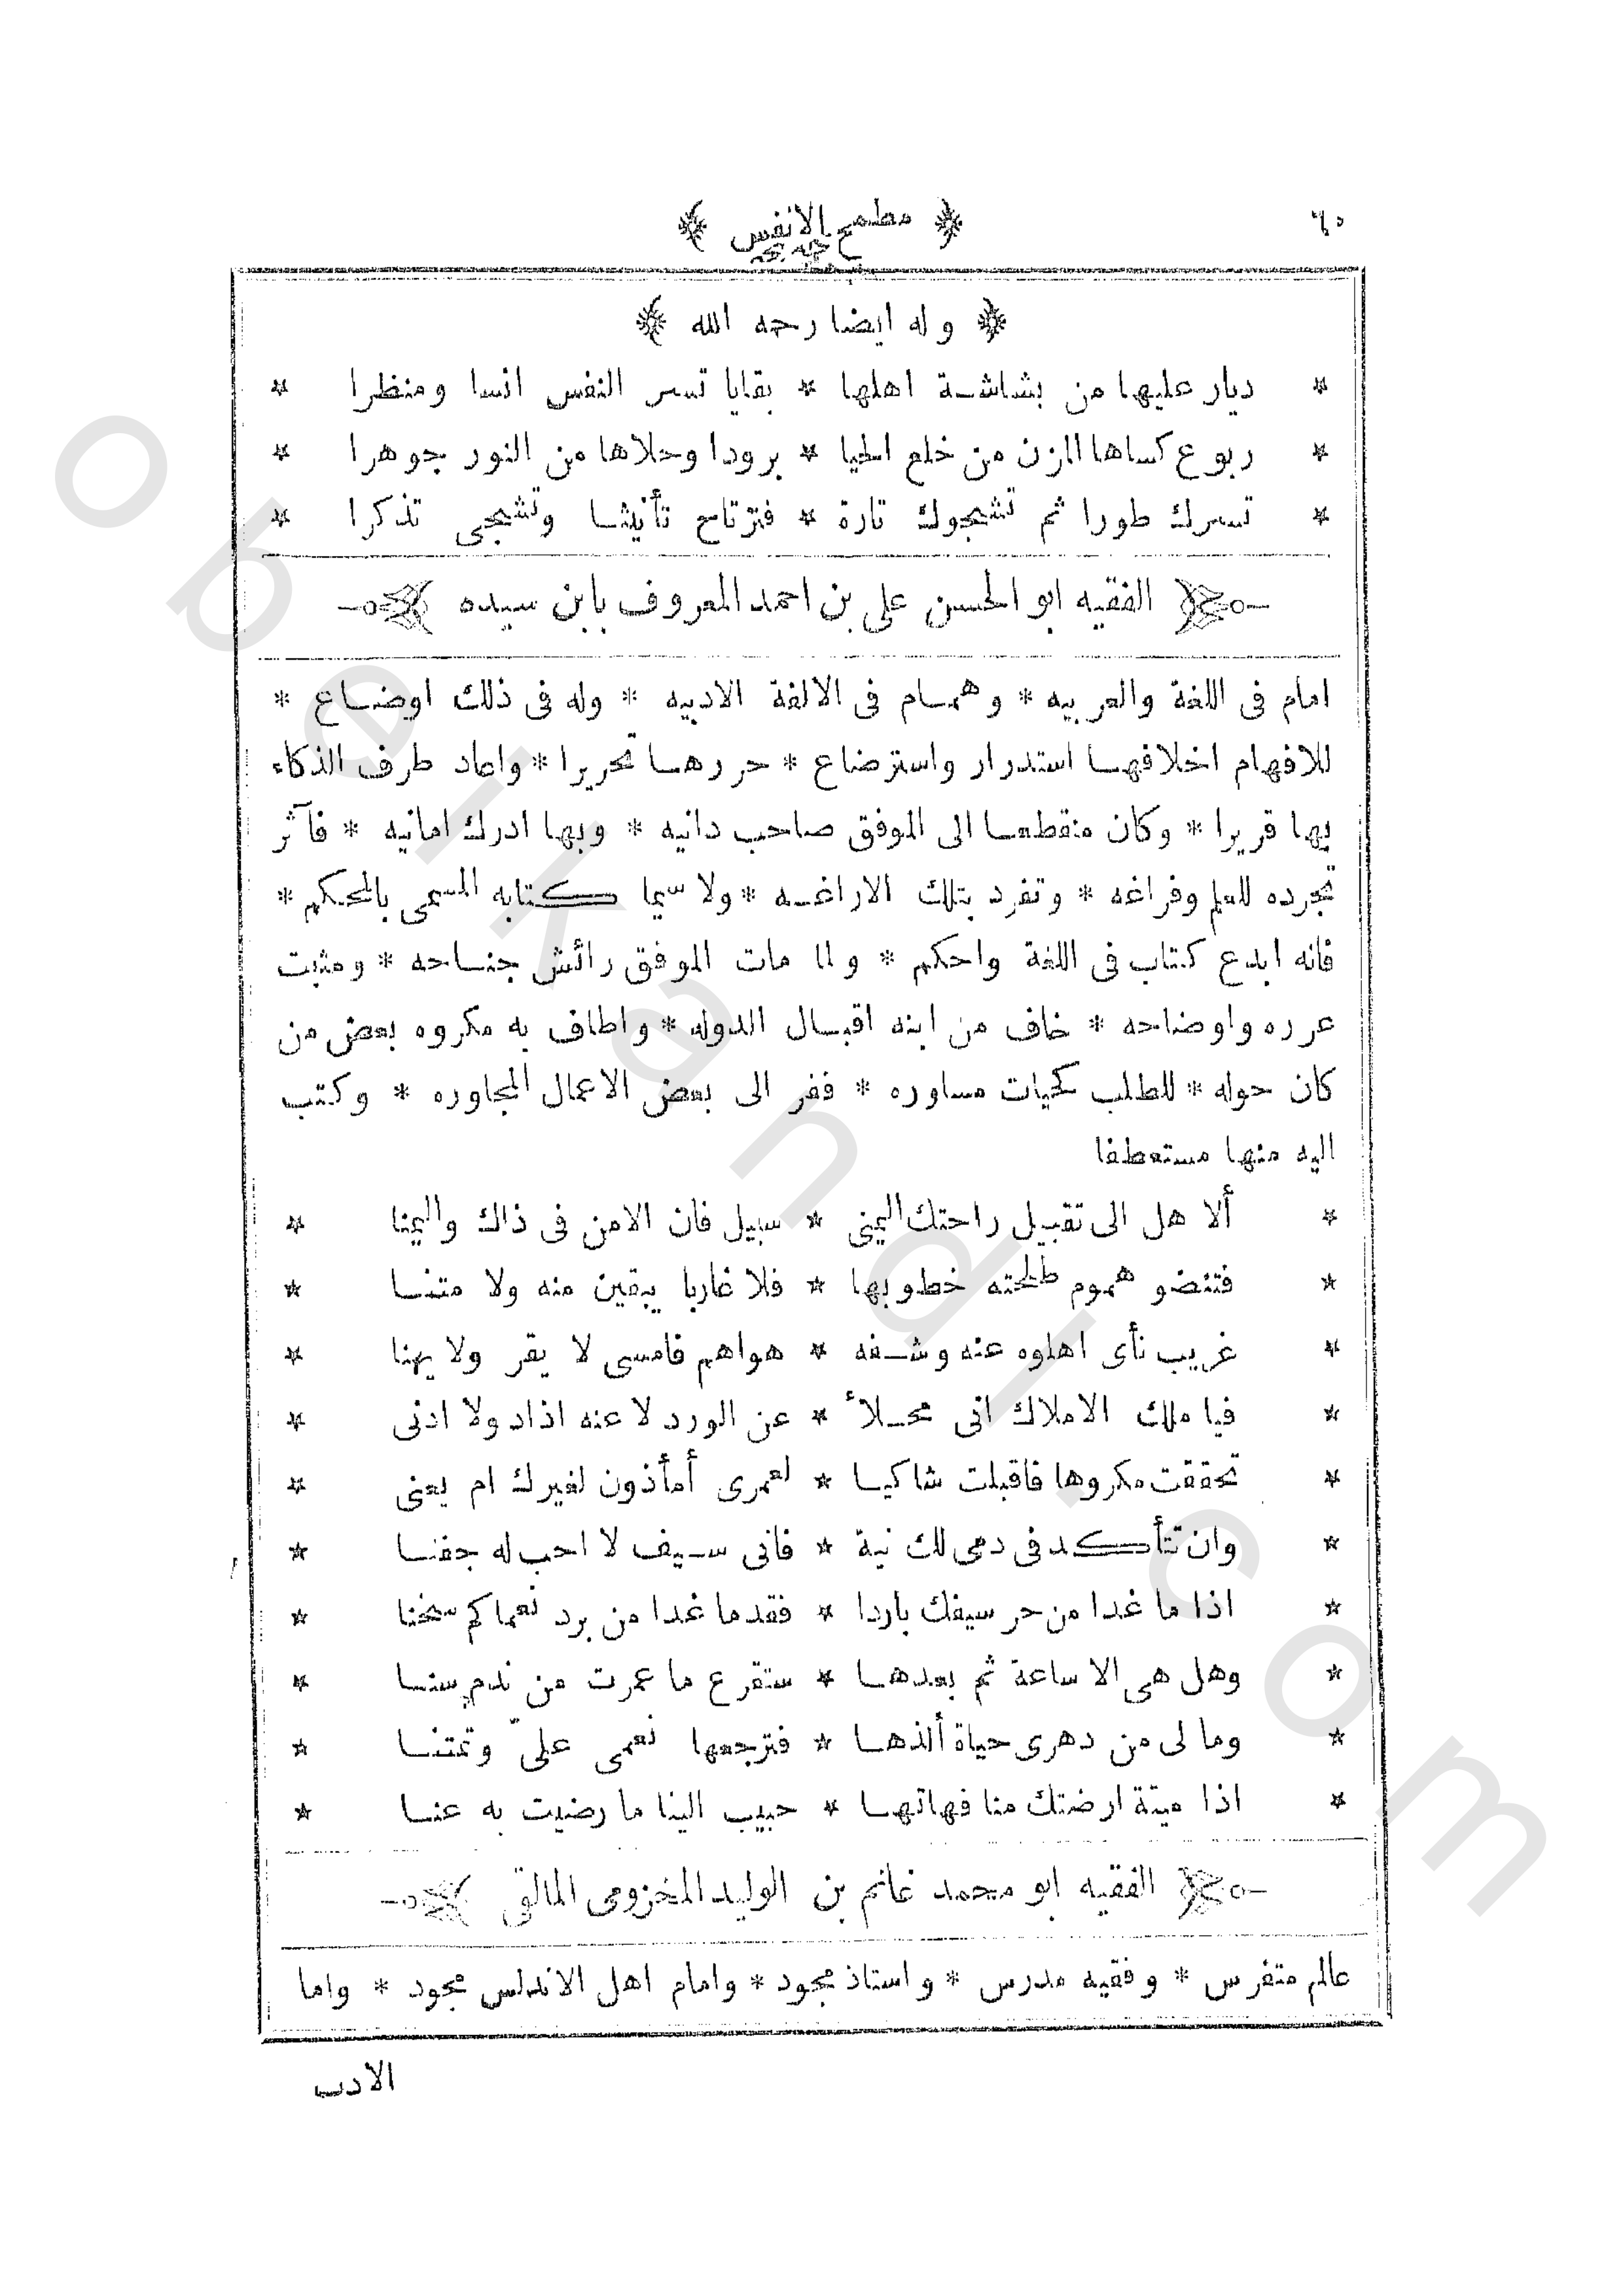 ٦٠
﴿ مطمح الانفس ﴾
﴿ وله ايضا رحه الله ﴾
* ديار عليها من بشاشة اهلها * بقايا تسر النفس انسا ومنظرا *
* ربوع كساها المزن من خلع الحيا * برودا وحلاها من النور جوهرا *
* تسرك طورا ثم تشجوك تارة * فترتاح تأنيثا وتشجى تذكرا *
الفقيه ابو الحسن على بن احمد المعروف بابن سيده
امام فى اللغة والعربيه * وهمام فى الالفة الادبيه * وله فى ذلك اوضاع *
للافهام اخلافها استدرار واسترضاع * حررها تحريرا * واعاد طرف الذكاء
بها قريرا * وكان منقطعا الى الموفق صاحب دانيه * وبها ادرك امانيه * فآثر
تجرده للعلم وفراغه * وتفرد بتلك الاراغه * ولا سيما كتابه المسمى بالمحكم *
فانه ابدع كتاب فى اللغة واحكم * ولما مات الموفق رائش جناحه * ومثبت
عرره واوضاحه * خاف من ابنه اقبال الدوله * واطاف به مكروه بعض من
كان حوله * للطلب كحيات مساوره * ففر الى بعض الاعمال المجاوره * وكتب
اليه منها مستعطفا
* ألا هل الى تقبيل راحتك اليمنى * سبيل فان الامن فى ذاك واليمنا *
* فتنضو هموم طلحته خطوبها * فلا غاربا يبقين منه ولا متنا *
* غريب نأى اهلوه عنه وشفه * هواهم فامسى لا يقر ولا يهنا *
* فيا ملك الاملاك انى محلأ * عن الورد لا عنه اذاد ولا ادنى *
* تحققت مكروها فاقبلت شاكيا * لعمرى أمأذون لغيرك ام يعنى *
* وان تتأكد فى دمى لك نية * فانى سيف لا احب له جفنا *
* اذا ما غدا من حر سيفك باردا * فقدما غدا من برد نعماكم سخنا *
* وهل هى الا ساعة ثم بعدها * ستقرع ما عمرت من ندم سنا *
* وما لى من دهرى حياة ألذها * فترجعها نعمى علىّ وتمتنا *
* اذا ميتة ارضتك منا فهاتها * حبيب الينا ما رضيت به عنا *
الفقيه ابو محمد غانم بن الوليد المخزومى المالقى
عالم متفرس * وفقيه مدرس * واستاذ مجود * وامام اهل الاندلس مجود * واما
الادب
obeikandl.com